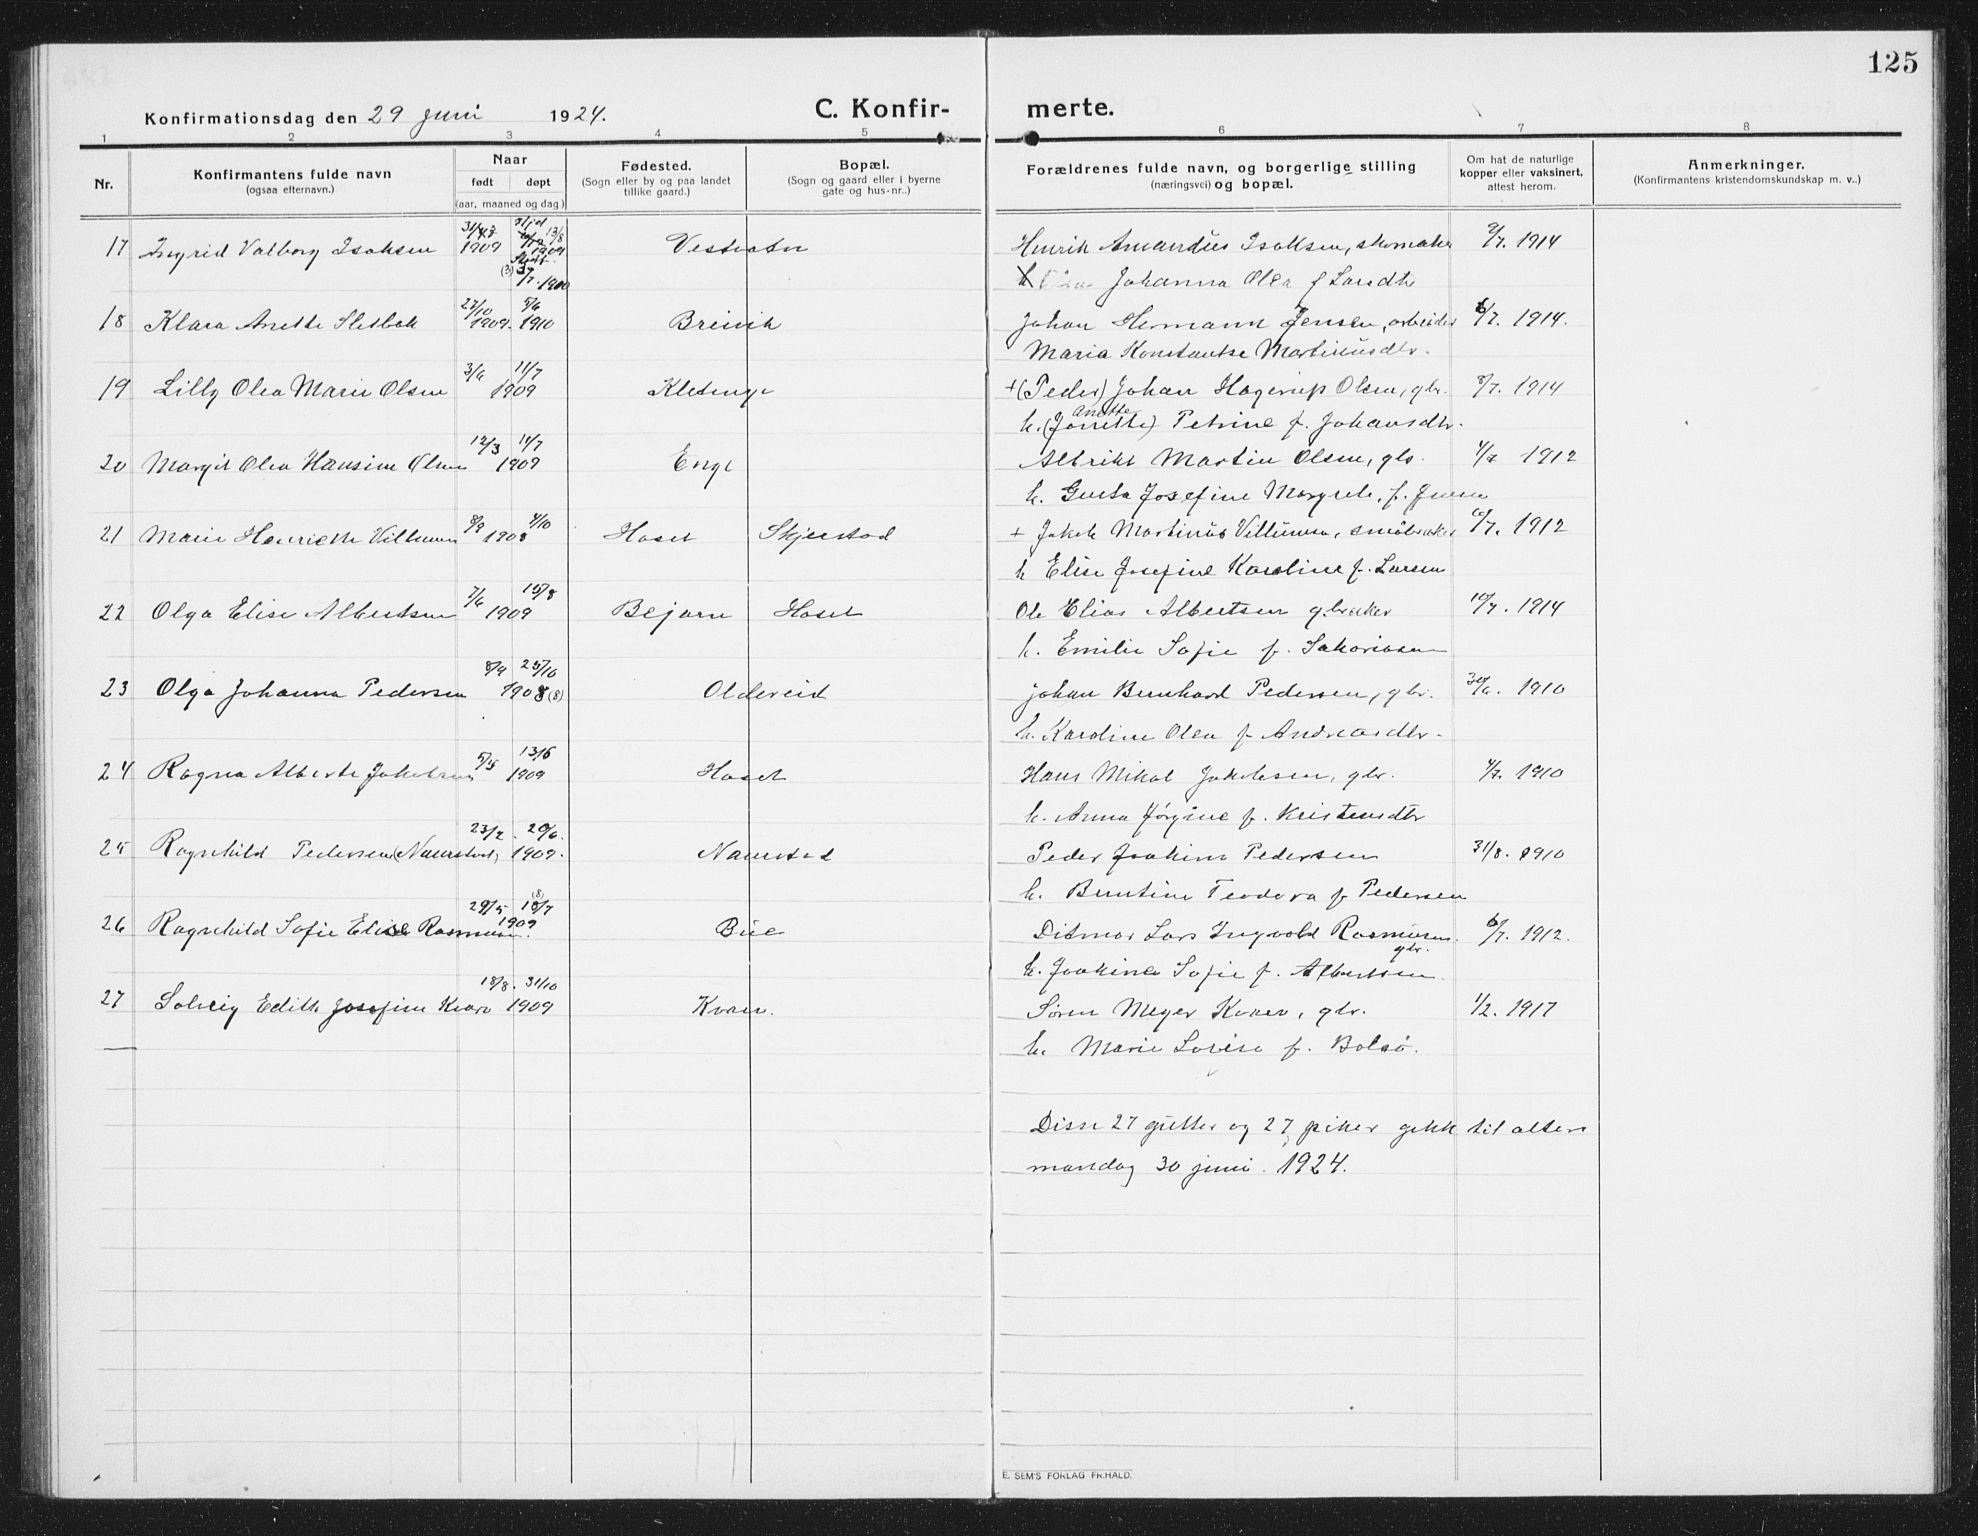 125
Konfirmationsdag den 29 juni 1924.
C. Konfir- merte.
1 2 3 4 5 6 7 8
Nr.
Konfirmantens fulde navn
(ogsaa efternavn.)
Naar
født døpt
(aar, maaned og dag)
Fødested.
(Sogn eller by og paa landet
tillike gaard.)
Bopæl.
(Sogn og gaard eller i byerne
gate og hus-nr..)
Forældrenes fulde navn, og borgerlige stilling
(næringsvei) og bopæl.
Om hat de naturlige
kopper eller vaksinert,
attest herom.
Anmerkninger.
(Konfirmantens kristendomskundskap m. v..)
17 Ingrid Valborg Isaksen 1909 Vestvatn Henrik Amandus Isaksen, skomaker 9/7. 1914
Johanna Olea f Larsdtr
18 Klara Anette Sletbak 27/10 1909. 5/6 1910 Breivik Johan Hermann Jensen, arbeider 6/7. 1914.
Maria Konstantse Martinusdtr.
19 Lilly Olea Marie Olsen 3/6 11/7 1909 Kletenge +(Peder) Johan Hagerup Olsen, gbr. 8/7. 1914
Anette
h. (Jonette) Petrine f. Johansdtr.
20 Margit Olea Hansine Olsen 12/3 11/7 1909 Enge Albrikt Martin Olsen, gbr. 4/7 1912
h. Gusta Josefine Margrete, f. Jensen
21 Marie Henriette Villumsen 8/9 4/10 1908 Hoset Skjerstad + Jakob Martinus Villumsen, småbruker 6/7. 1912
h Elise Josefine Karoline f. Larsen
22 Olga Elise Albertsen 7/6 15/8 1909 Bejarn Hoset Ole Elias Albertsen gbruker 10/7. 1914
h. Emilie Sofie f. Sakariasen
23 Olga Johanna Pedersen 8/9 25/10 1908 (8) Oldereid Johan Bernhard Pedersen, gbr. 30/6. 1910
h. Karoline Olea f Andreasdtr.
24 Ragna Alberte Jakobsen 5/5 13/6 1909 Hoset Hans Mikal Jakobsen, gbr. 4/7. 1910
h. Anna Jørgine f. Kristensdtr
25 Ragnhild Pedersen (Naurstad) 23/2. 20/6. 1909. Naurstad Peder Joakim Pedersen 31/8. 1910
h. Berntine Teodora f Pedersen
26 Ragnhild Sofie Elise Rasmussen. 29/5 (8) 18/7 1909 Bue Ditmar Lars Ingvald Rasmussen. gbr. 6/7. 1912.
h. Joakine Sofie f. Albertsen.
27 Solveig Edith Josefine Kvæn 18/8. 31/10 1909 Kvæn. Søren Meyer Kvæn, gbr. 1/2. 1917
h. Marie Lovise f. Bolsø.
Disse 27 gutter og 27 piker gikk til alters
mandag 30 juni. 1924.
E. SEM'S FORLAG FR.HALD.